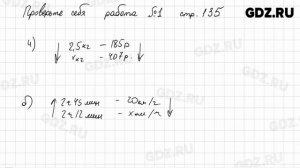 GDZ.RU
Проверьте себя работа №1 стр. 135
4)
↓ 2,5 кг – 185 р ↓
х кг – 407 р.
б)
↑ 2 ч 45 мин – 20 км/ч ↓
2 ч 12 мин – х км/ч
GDZ.RU